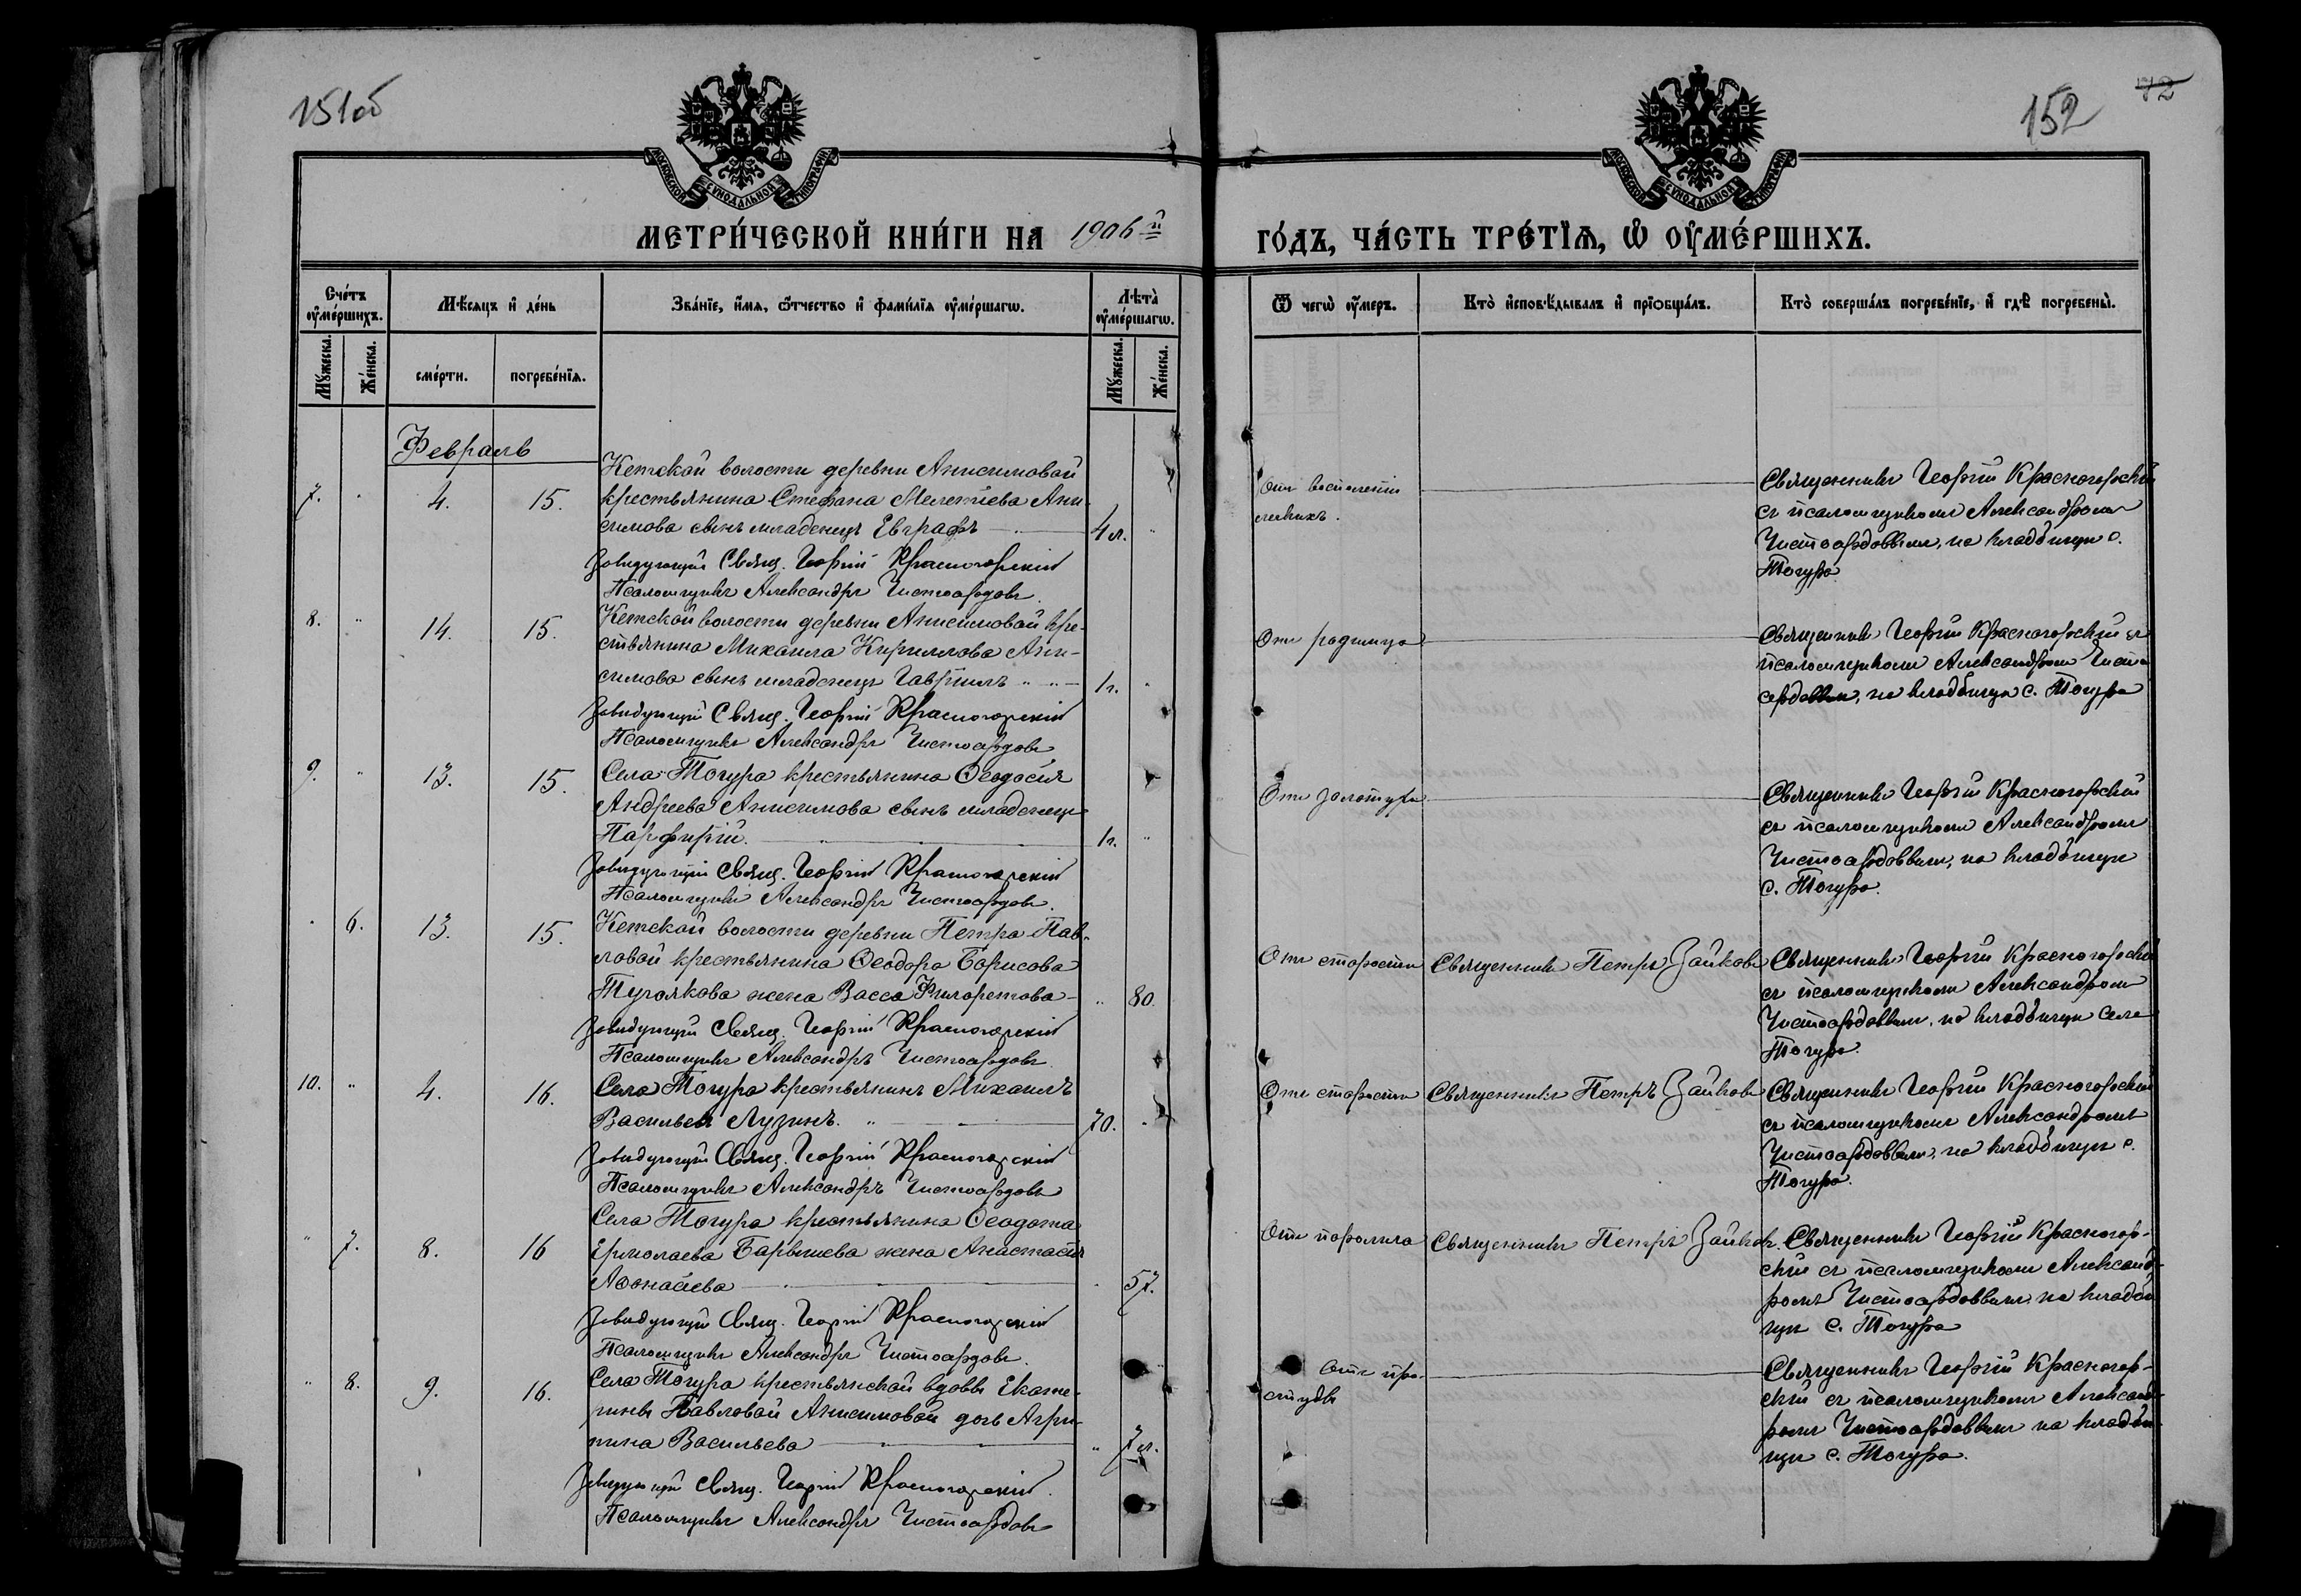 151об
152
72
МОСКОВСКОЙ СѴНОДАЛЬНОЙ ТИПОГРАФІИ
МОСКОВСКОЙ СѴНОДАЛЬНОЙ ТИПОГРАФІИ
МЕТРИ́ЧЕСКОЙ КНИ́ГИ НА 1906й
ГО́ДЪ, ЧА́СТЬ ТРЕ́ТІѦ, Ѡ҆ ОУ҆МЕ́РШИХЪ.
Сче́тъ оу҆ме́ршихъ.
Мѣ́сяцъ и҆ де́нь
Зва́нїе, и҆́мѧ, ѻ҆́тчество и҆ фами́лїѧ оу҆ме́ршагѡ.
Лѣ́та̀ оу҆ме́ршагѡ.
Мꙋ́жеска.
Же́нска.
сме́рти.
погребе́нїѧ.
Мꙋ́жеска.
Же́нска.
Ѿ чегѡ̀ оу҆́меръ.
Кто̀ и҆сповѣ́дывалъ и҆ прїѻбща́лъ.
Кто̀ соверша́лъ погребе́нїе, и҆ гдѣ̀ погребены̀.
Февраль
7.
4.
15.
Кетской волости деревни Анисимовой
крестьянина Стефана Мелетіева Ани-
симова сынъ младенецъ Евграфъ
4 л.
Завидующій Свящ. Георгій Красногорскій
Псаломщикъ Александръ Чистосердовъ.
Отъ воспаленія
легкихъ.
Священникъ Георгій Красногорскій
съ псаломщикомъ Александромъ
Чистосердовымъ, на кладбищѣ с.
Тогура
8.
14.
15.
Кетской волости деревни Анисимовой кре-
стьянина Михаила Кириллова Ани-
симова сынъ младенецъ Гавріилъ
1 г.
Завидующій Свящ. Георгій Красногорскій
Псаломщикъ Александръ Чистосердовъ
Отъ родимца
Священникъ Георгій Красногорскій съ
псаломщикомъ Александромъ Чисто
сердовымъ, на кладбищѣ с. Тогура
9.
13.
15.
Села Тогура крестьянина Ѳеодосія
Андреева Анисимова сынъ младенецъ
Парфирій.
1 г.
Завидующій Свящ. Георгій Красногорскій
Псаломщикъ Александръ Чистосердовъ.
Отъ золотухи
Священникъ Георгій Красногорской
съ псаломщикомъ Александромъ
Чистосердовымъ, на кладбищѣ
с. Тогура.
6.
13.
15.
Кетской волости деревни Петра Пав-
ловой крестьянина Ѳеодора Борисова
Тугоякова жена Васса Филаретова
80.
Завидующій Свящ. Георгій Красногорскій
Псаломщикъ Александръ Чистосердовъ
Отъ старости
Священникъ Петръ Зайковъ
Священникъ Георгій Красногорской
съ псаломщикомъ Александромъ
Чистосердовымъ, на кладбищѣ села
Тогура.
10.
4.
16.
Села Тогура крестьянинъ Михаилъ
Васильевъ Лузинъ.
70.
Завидующій Свящ. Георгій Красногорскій
Псаломщикъ Александръ Чистосердовъ
Отъ старости
Священникъ Петръ Зайковъ
Священникъ Георгій Красногорской
съ псаломщикомъ Александромъ
Чистосердовымъ, на кладбищѣ с.
Тогура.
7.
8.
16
Села Тогура крестьянина Ѳеодота
Ермолаева Барышева жена Анастасія
Аѳонасіева
57.
Завидующій Свящ. Георгій Красногорскій
Псаломщикъ Александръ Чистосердовъ.
Отъ паралича
Священникъ Петръ Зайковъ.
Священникъ Георгій Красногор-
скій съ псаломщикомъ Александ-
ромъ Чистосердовымъ на кладби
щѣ с. Тогура
8.
9.
16.
Села Тогура крестьянской вдовы Екате-
рины Павловой Анисимовой дочь Агри-
пина Васильева
7 л.
Завидующій Свящ. Георгій Красногорскій.
Псаломщикъ Александръ Чистосердовъ
Отъ про-
студы
Священникъ Георгій Красногор-
скій съ псаломщикомъ Александ-
ромъ Чистосердовымъ на кладби-
щѣ с. Тогура.